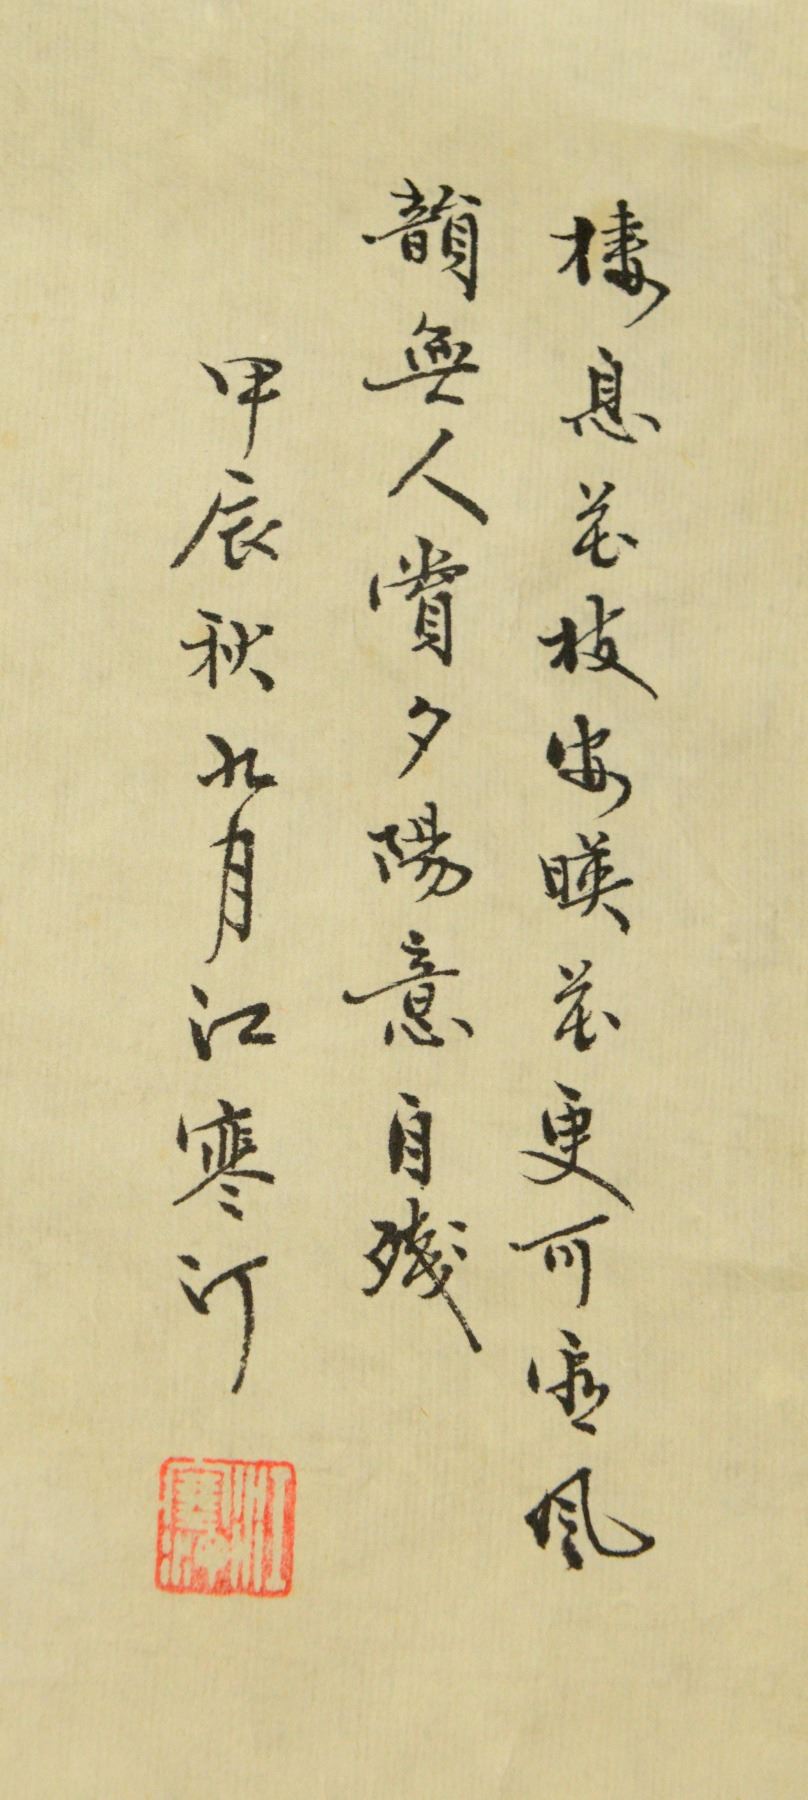 棲息花枝安暎花更可風
韻無人賞夕陽意自殘
甲辰秋九月江寒汀
江寒汀